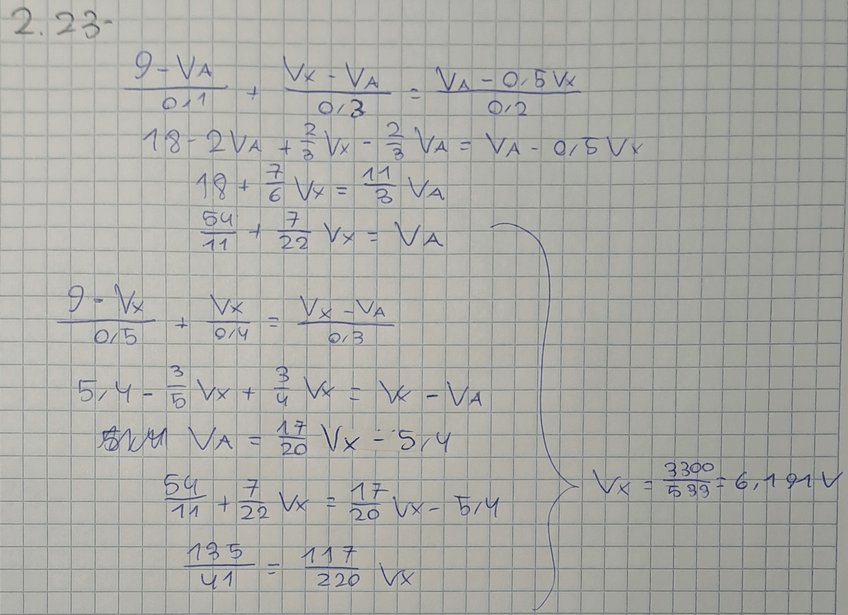 2.23-
(9 - VA)/0,1 + (Vx - VA)/0,3 = (VA - 0,5Vx)/0,2
18 - 2VA + 2/3 Vx - 2/3 VA = VA - 0,5 Vx
18 + 7/6 Vx = 11/3 VA
54/11 + 7/22 Vx = VA
(9 - Vx)/0,5 + Vx/0,4 = (Vx - VA)/0,3
5,4 - 3/5 Vx + 3/4 Vx = Vx - VA
VA = 17/20 Vx - 5,4
54/11 + 7/22 Vx = 17/20 Vx - 5,4
Vx = 3300/533 = 6,191 V
135/41 = 117/220 Vx